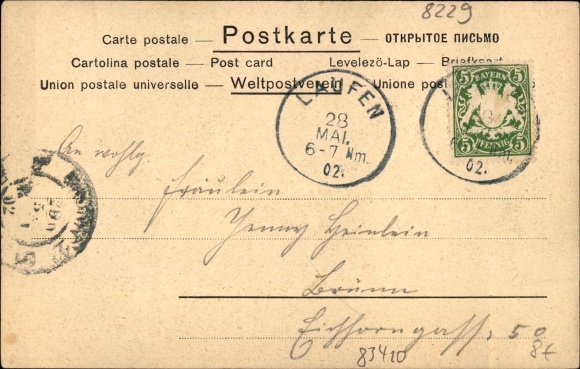 8229
Carte postale — Postkarte — ОТКРЫТОЕ ПИСЬМО
Cartolina postale — Post card Levelező-Lap — Briefkaart
Union postale universelle — Weltpostverein Unione post
LAUFEN
28
MAI.
6-7 Nm.
02.
5 BAYERN 5
5 PFENNIG 5
02.
An wohlg.
Fräulein
Jenny Heinlein
Brünn
Eichhorngasse, 50
83410
8£